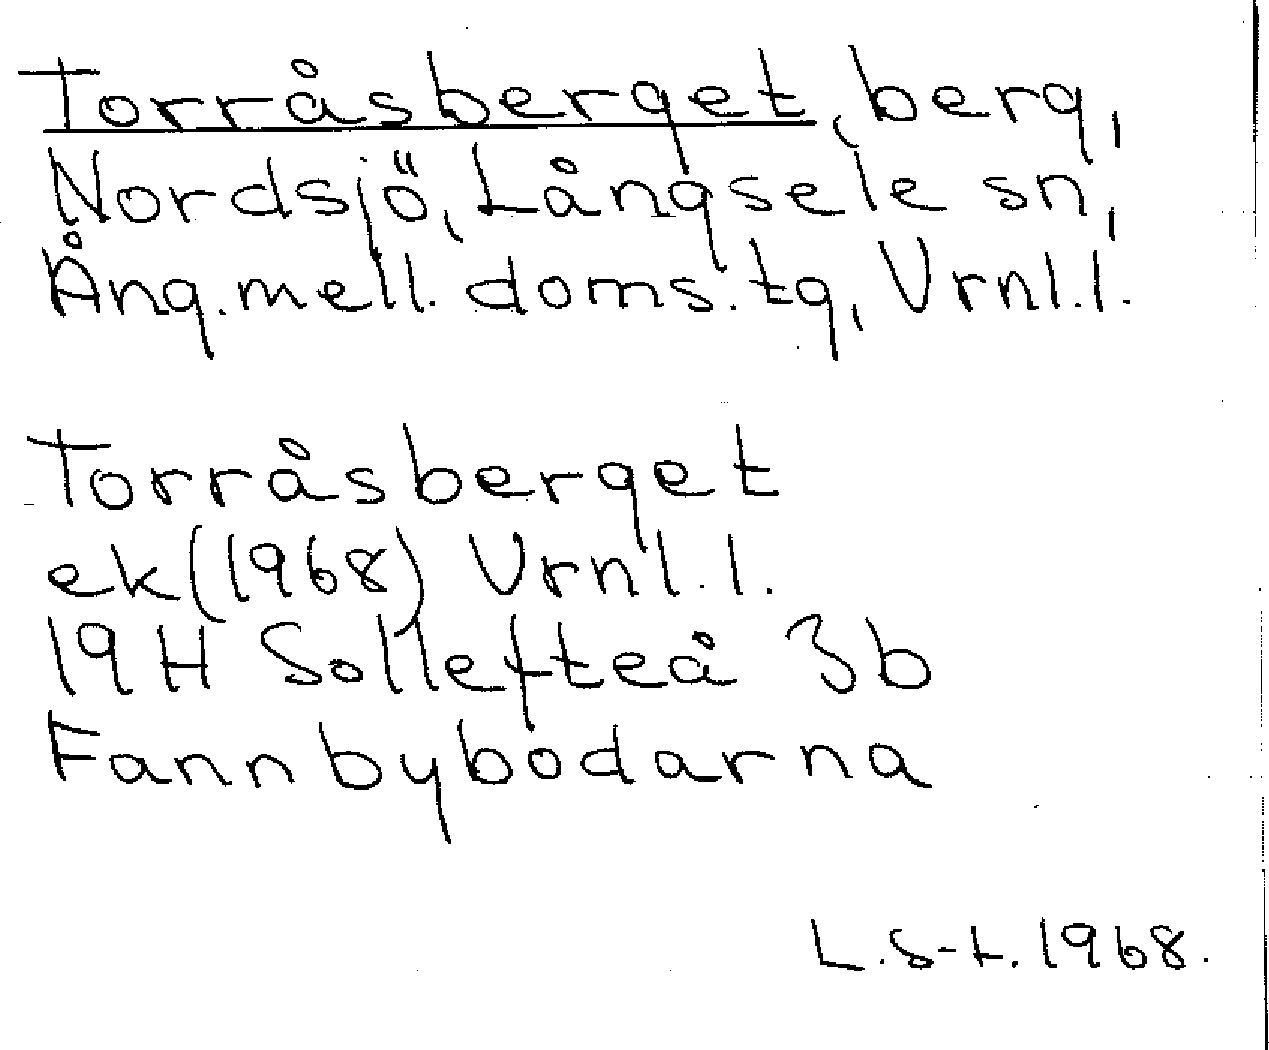 Torråsberget, berg,
Nordsjö, Långsele sn,
Ång.mell. doms.tg, Vrnl.l.
Torråsberget
ek(1968) Vrnl.l.
19H Sollefteå 3b
Fannbybodarna
L.S-t. 1968.